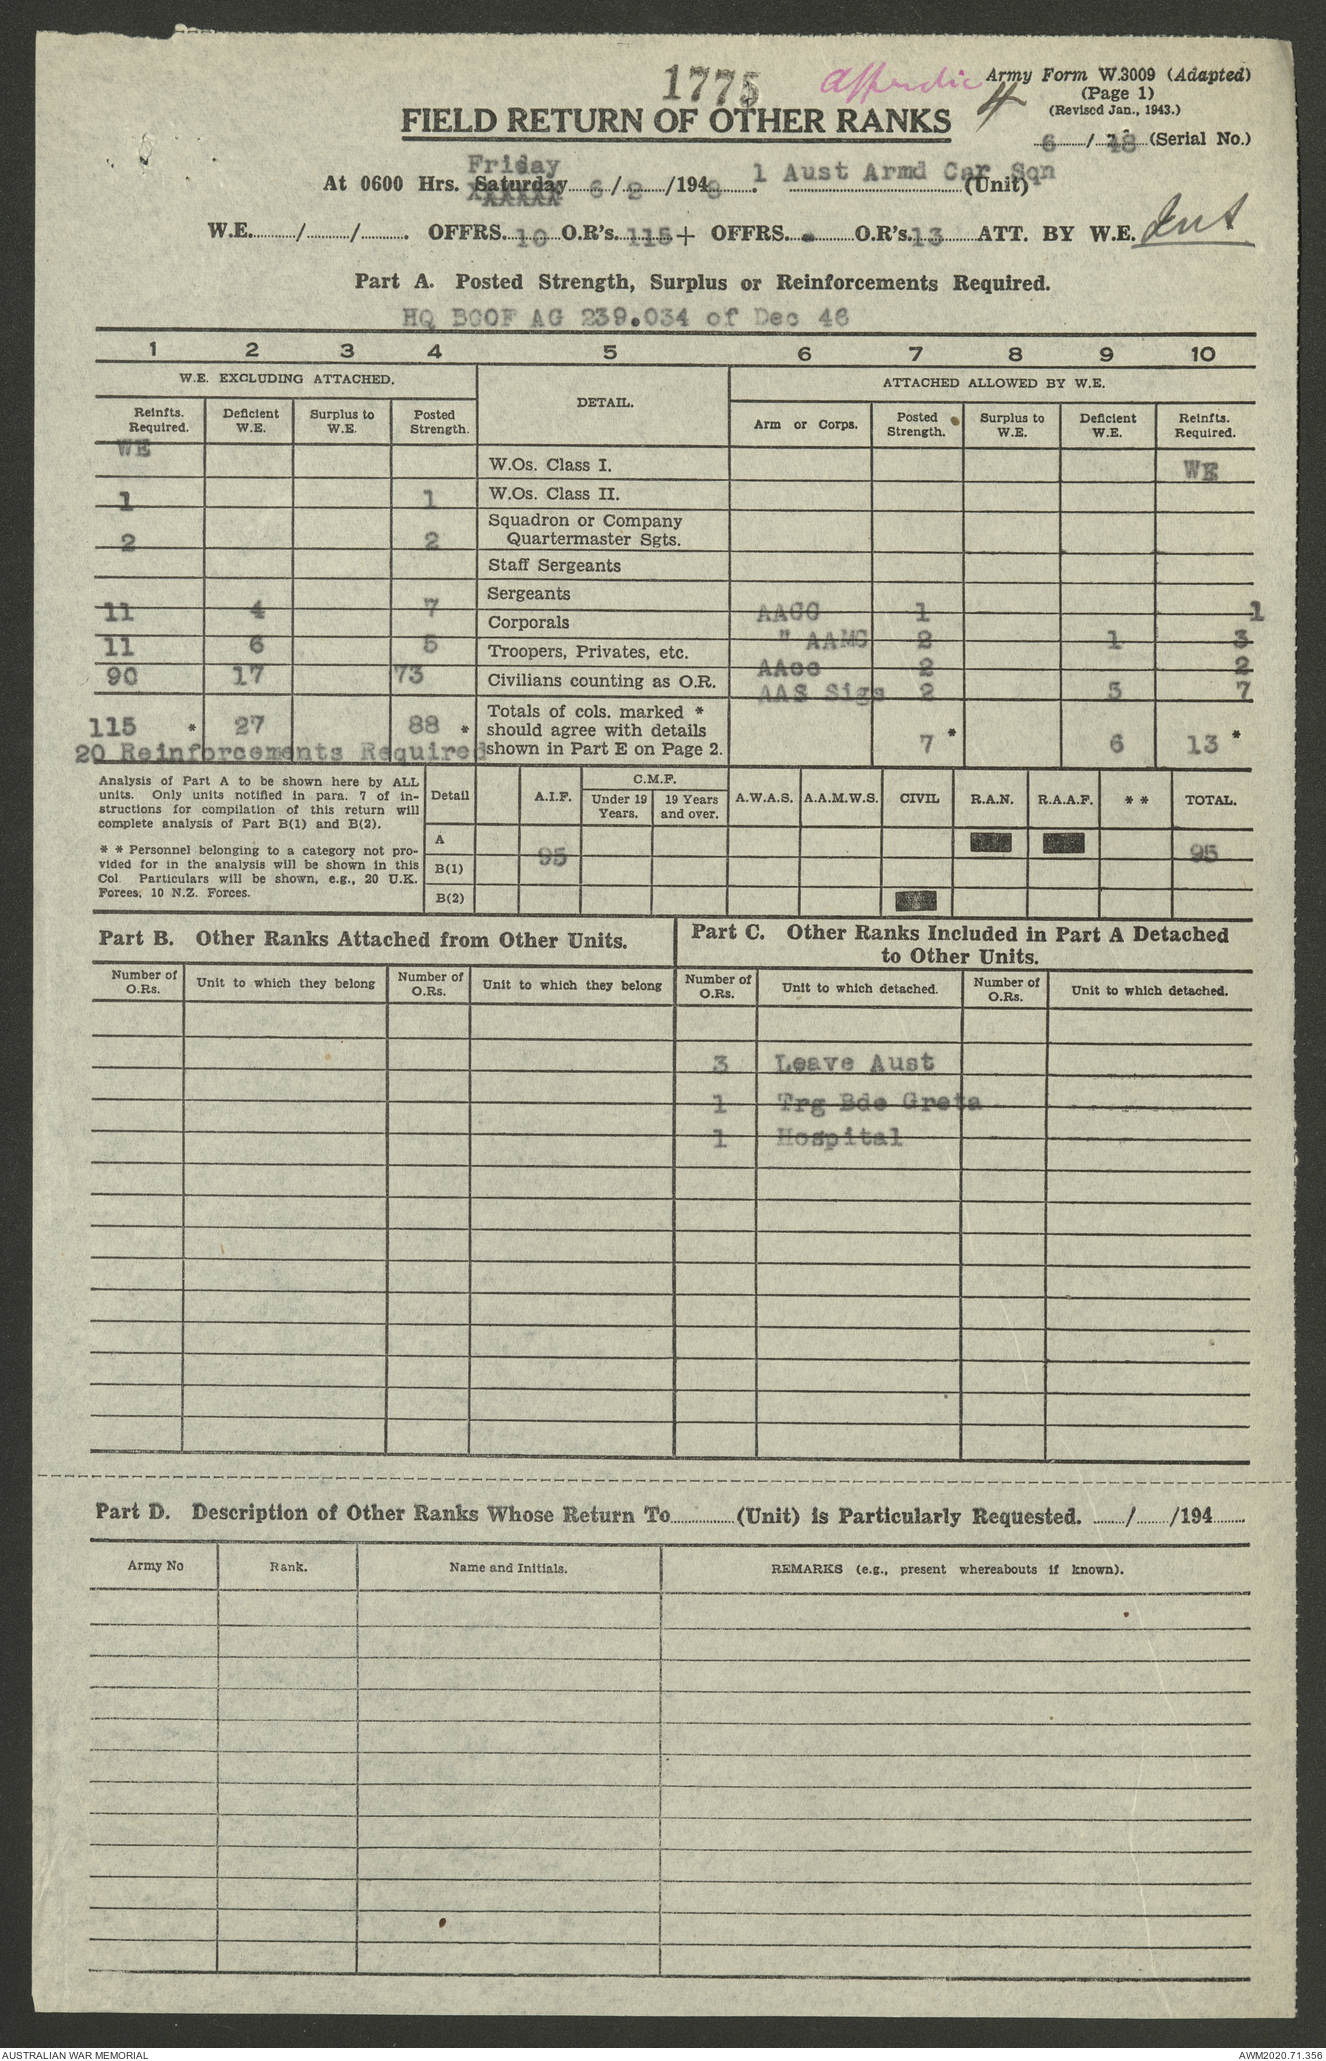 1775
Appendix 4
Army Form W.3009 (Adapted)
(Page 1)
(Revised Jan., 1943.)
FIELD RETURN OF OTHER RANKS
6/48 (Serial No.)
Friday
At 0600 Hrs. Saturday 6/2/1948. 1 Aust Armd Car Sqn (Unit)
XXXXX
W.E. / / . OFFRS. 10 O.R's. 115 + OFFRS. - O.R's. 13 ATT. BY W.E.
Part A. Posted Strength, Surplus or Reinforcements Required.
HQ BCOF AG 239.034 of Dec 46
1 2 3 4 5 6 7 8 9 10
W.E. EXCLUDING ATTACHED. DETAIL. ATTACHED ALLOWED BY W.E.
Reinfts. Required. Deficient W.E. Surplus to W.E. Posted Strength. Arm or Corps. Posted Strength. Surplus to W.E. Deficient W.E. Reinfts. Required.
WE W.Os. Class I. WE
1 1 W.Os. Class II.
2 2 Squadron or Company
Quartermaster Sgts.
Staff Sergeants
11 4 7 Sergeants AACC 1 1
11 6 5 Corporals " AAMC 2 1 3
90 17 73 Troopers, Privates, etc. AAcc 2 2
Civilians counting as O.R. AAS Sigs 2 5 7
115 * 27 88 * Totals of cols. marked *
should agree with details
shown in Part E on Page 2. 7 * 6 13 *
20 Reinforcements Required
Analysis of Part A to be shown here by ALL
units. Only units notified in para. 7 of in-
structions for compilation of this return will
complete analysis of Part B(1) and B(2).
* * Personnel belonging to a category not pro-
vided for in the analysis will be shown in this
Col. Particulars will be shown, e.g., 20 U.K.
Forces, 10 N.Z. Forces.
Detail A.I.F. C.M.F. Under 19 Years. 19 Years and over. A.W.A.S. A.A.M.W.S. CIVIL R.A.N. R.A.A.F. * * TOTAL.
A 95 95
B(1)
B(2)
Part B. Other Ranks Attached from Other Units.
Part C. Other Ranks Included in Part A Detached
to Other Units.
Number of O.Rs. Unit to which they belong Number of O.Rs. Unit to which they belong Number of O.Rs. Unit to which detached. Number of O.Rs. Unit to which detached.
3 Leave Aust
1 Trg Bde Greta
1 Hospital
Part D. Description of Other Ranks Whose Return To (Unit) is Particularly Requested. / /194
Army No Rank. Name and Initials. REMARKS (e.g., present whereabouts if known).
AUSTRALIAN WAR MEMORIAL AWM2020.71.356